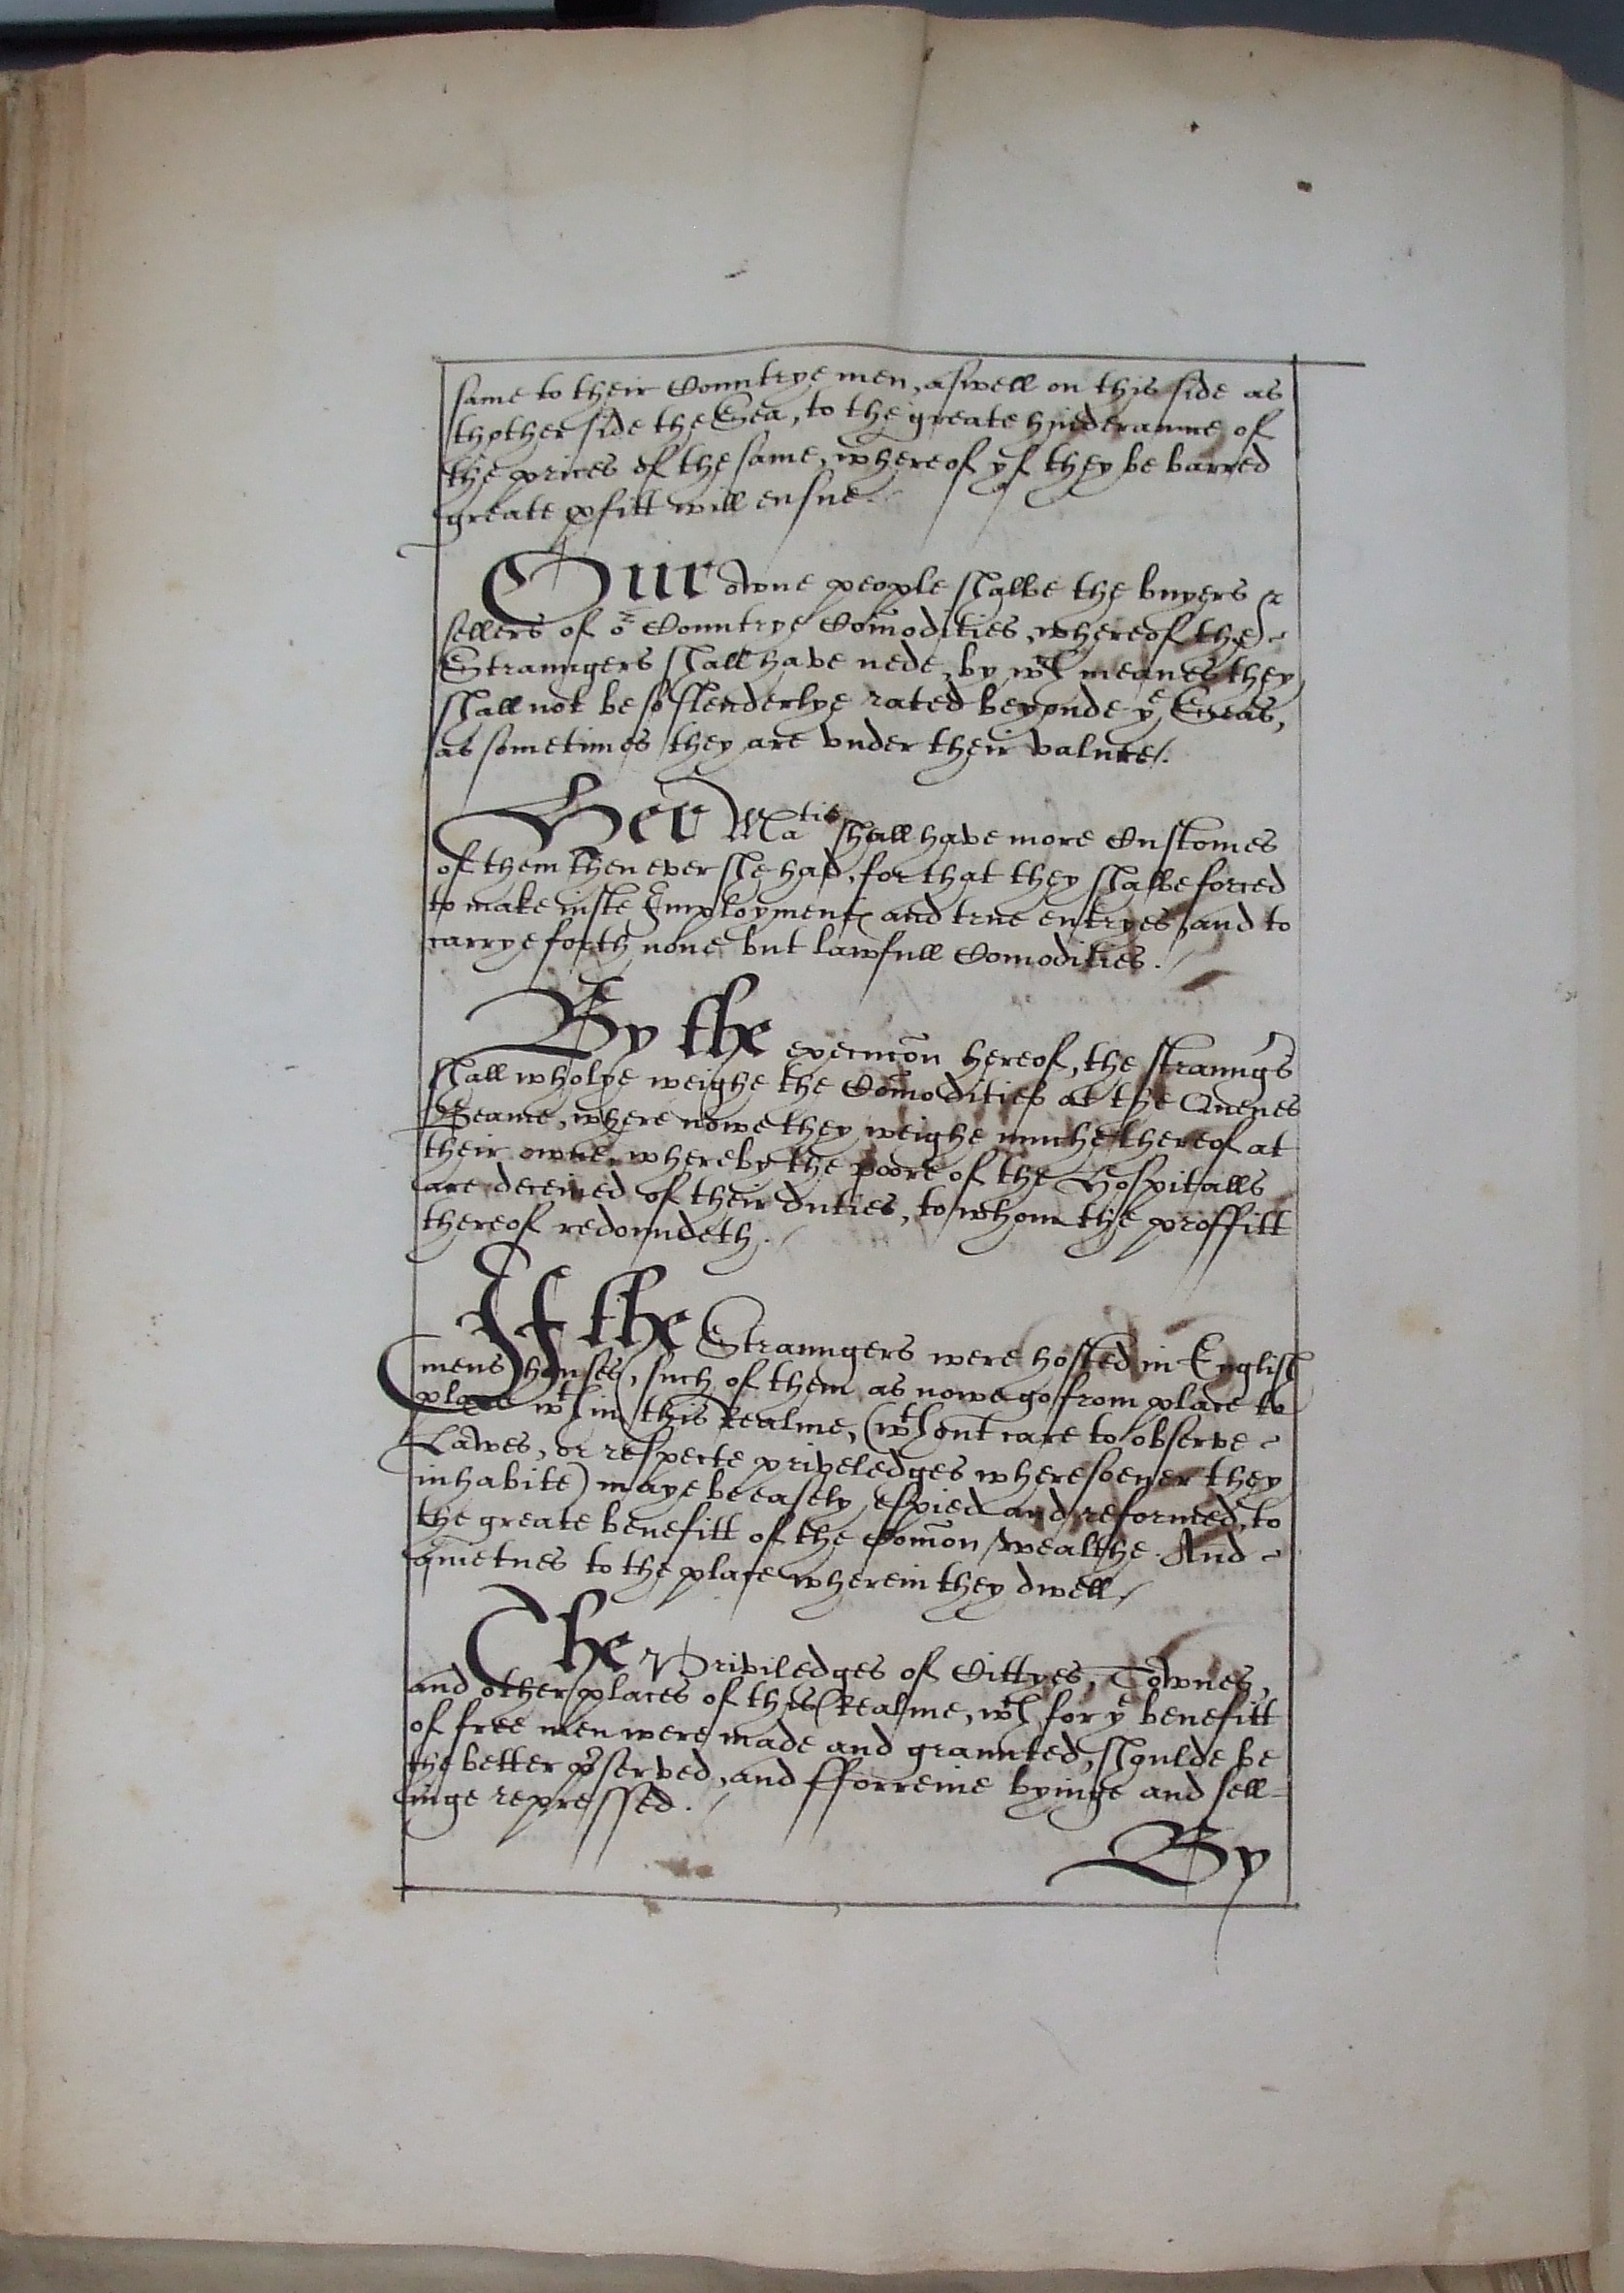 same to their Countrye men, aswell on this side as
thother side the Sea, to the greate hinderaunce of
the prices of the same, whereof yf they be barred
greate pfitt will ensue.
Our owne people shalbe the buyers &
sellers of or Countrye Comodities, whereof the
Straungers shall have nede, by wch meanes they
shall not be so slenderlye rated beyonde ye Seas,
as sometimes they are vnder their value.
Her Matie shall have more Customes
of them then ever she had, for that they shalbe forced
to make iuste Employmentes and true entryes, and to
carrye forth none but lawfull Comodities.
By the execucõn hereof, the straungrs
shall wholye weighe the Comodities at the Quenes
Beame, where nowe they weighe muche thereof at
their owne, whereby the poore of the Hospitalls
are deceived of their duties, to whom the proffitt
thereof redoundeth.
If the Straungers were hosted in English
mens houses, such of them as nowe go from place to
place wthin this Realme, (wthout care to observe
Lawes, or respecte priveledges wheresoever they
inhabite) maye be easely espied and reformed, to
the greate benefitt of the Comõn wealthe. And
a metnes to the place wherein they dwell
The Priviledges of Cittyes, Townes,
and other places of this Realme, wch for ye benefitt
of free men were made and graunted, shoulde be
the better pserved, and fforreine byinge and sell=
inge repressed.
By